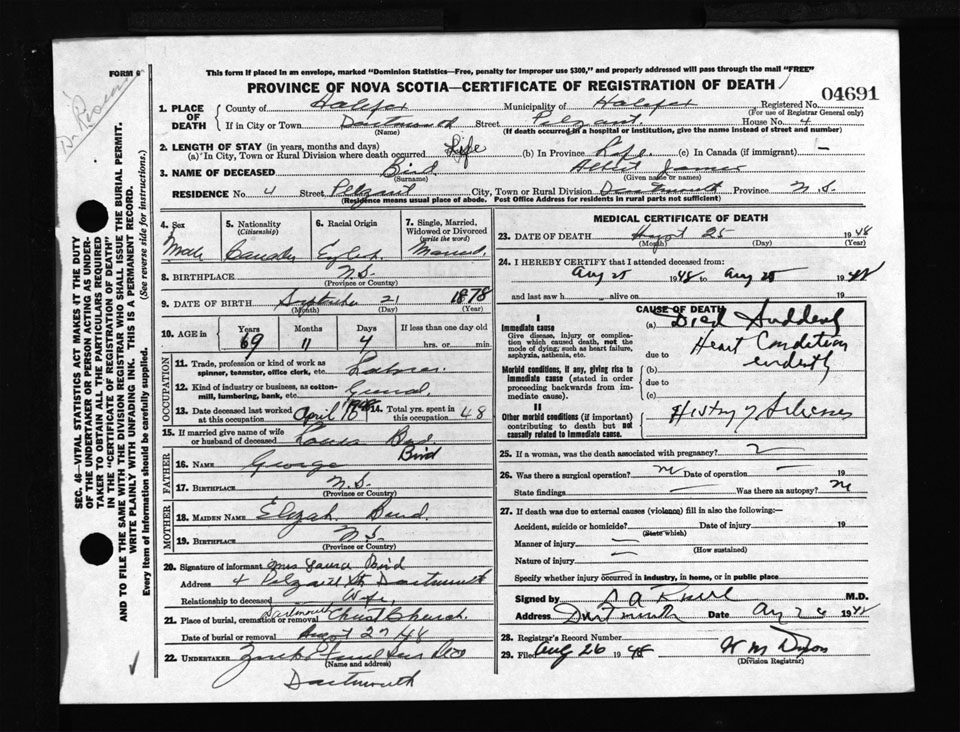 FORM 6
This form if placed in an envelope, marked "Dominion Statistics—Free, penalty for improper use $300," and properly addressed will pass through the mail "FREE"
PROVINCE OF NOVA SCOTIA—CERTIFICATE OF REGISTRATION OF DEATH
04691
1. PLACE OF DEATH County of Halifax Municipality of Halifax Registered No.
(For use of Registrar General only)
If in City or Town Dartmouth Street Pelzant. House No. 4
(Name) (If death occurred in a hospital or institution, give the name instead of street and number)
2. LENGTH OF STAY (in years, months and days)
(a) In City, Town or Rural Division where death occurred Life (b) In Province Life. (c) In Canada (if immigrant) —
3. NAME OF DECEASED Bird. Albert James
(Surname) (Given name or names)
RESIDENCE No. 4 Street Pelzant City, Town or Rural Division Dartmouth Province N.S.
(Residence means usual place of abode. Post Office Address for residents in rural parts not sufficient)
4. Sex 5. Nationality (Citizenship) 6. Racial Origin 7. Single, Married, Widowed or Divorced (write the word)
Male Canada English. Married.
8. BIRTHPLACE N.S.
(Province or Country)
9. DATE OF BIRTH September 21 1878
(Month) (Day) (Year)
10. AGE in Years Months Days If less than one day old
69 11 4 hrs. or min.
OCCUPATION
11. Trade, profession or kind of work as spinner, teamster, office clerk, etc. Labour.
12. Kind of industry or business, as cotton-mill, lumbering, bank, etc. General.
13. Date deceased last worked at this occupation April 1948 14. Total yrs. spent in this occupation 48
15. If married give name of wife or husband of deceased Laura Bird.
FATHER
16. NAME George Bird
17. BIRTHPLACE N.S.
(Province or Country)
MOTHER
18. MAIDEN NAME Elizah.
19. BIRTHPLACE N.S.
(Province or Country)
20. Signature of informant Mrs Laura Bird
Address 4 Pelzant St. Dartmouth
Relationship to deceased Wife.
21. Place of burial, cremation or removal Dartmouth Christ Church.
Date of burial or removal August 27/48
22. UNDERTAKER
(Name and address)
Dartmouth
MEDICAL CERTIFICATE OF DEATH
23. DATE OF DEATH August 25 1948
(Month) (Day) (Year)
24. I HEREBY CERTIFY that I attended deceased from:
Aug 25 1948 to Aug 25 1948
and last saw h alive on 19
CAUSE OF DEATH
I
Immediate cause
Give disease, injury or complication which caused death, not the mode of dying, such as heart failure, asphyxia, asthenia, etc.
(a) Died Suddenly
Heart Condition
due to evidently
Morbid conditions, if any, giving rise to immediate cause (stated in order proceeding backwards from immediate cause).
(b)
due to
(c)
II
Other morbid conditions (if important) contributing to death but not causally related to immediate cause.
History of
25. If a woman, was the death associated with pregnancy?
26. Was there a surgical operation? no Date of operation — 19
State findings — Was there an autopsy? no
27. If death was due to external causes (violence) fill in also the following:—
Accident, suicide or homicide? Date of injury 19
(State which)
Manner of injury
(How sustained)
Nature of injury
Specify whether injury occurred in industry, in home, or in public place
Signed by M.D.
Address Dartmouth Date Aug 26 1948
28. Registrar's Record Number
29. Filed Aug 26 1948 W M Dyson
(Division Registrar)
SEC. 46—VITAL STATISTICS ACT MAKES IT THE DUTY
OF THE UNDERTAKER OR PERSON ACTING AS UNDER-
TAKER TO OBTAIN ALL THE PARTICULARS REQUIRED
IN THE "CERTIFICATE OF REGISTRATION OF DEATH"
AND TO FILE THE SAME WITH THE DIVISION REGISTRAR WHO SHALL ISSUE THE BURIAL PERMIT.
WRITE PLAINLY WITH UNFADING INK. THIS IS A PERMANENT RECORD.
Every item of information should be carefully supplied. (See reverse side for instructions.)